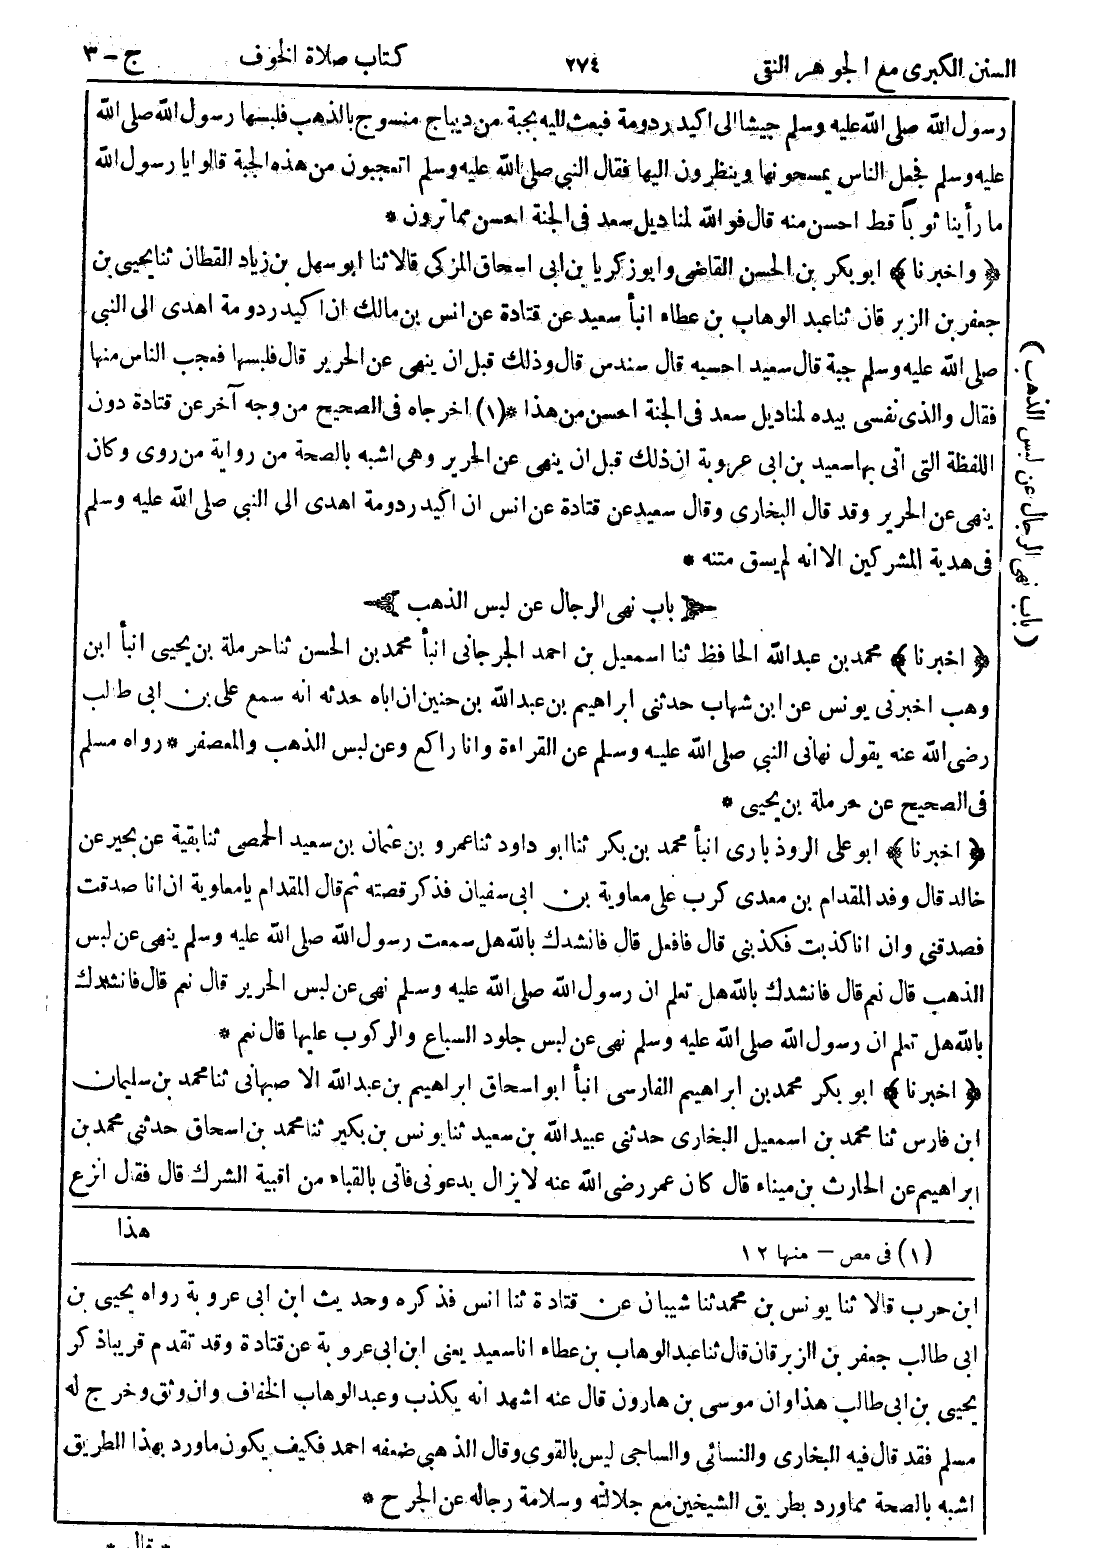 السنن الكبرى مع الجوهر النقى ٢٧٤ كتاب صلاة الخوف ج - ٣
رسول الله صلى الله عليه وسلم جيشا الى اكيدر دومة فبعث اليه بجبة من ديباج منسوج بالذهب فلبسها رسول الله صلى الله
عليه وسلم فجعل الناس يمسحونها وينظرون اليها فقال النبي صلى الله عليه وسلم اتعجبون من هذه الجبة قالوا يا رسول الله
ما رأينا ثوبا قط احسن منه قال فوالله لمناديل سعد فى الجنة احسن مما ترون *
﴿ واخبرنا ﴾ ابو بكر بن الحسن القاضى وابو زكريا بن ابى اسحاق المزكى قالا ثنا ابو سهل بن زياد القطان ثنا يحيى بن
جعفر بن الزبرقان ثنا عبد الوهاب بن عطاء انبأ سعيد عن قتادة عن انس بن مالك ان اكيدر دومة اهدى الى النبي
صلى الله عليه وسلم جبة قال سعيد احسبه قال سندس قال وذلك قبل ان ينهى عن الحرير قال فلبسها فعجب الناس منها
فقال والذى نفسى بيده لمناديل سعد فى الجنة احسن من هذا * (١) اخرجاه فى الصحيح من وجه آخر عن قتادة دون
اللفظة التى اتى بها سعيد بن ابى عروبة ان ذلك قبل ان ينهى عن الحرير وهى اشبه بالصحة من رواية من روى وكان
ينهى عن الحرير وقد قال البخارى وقال سعيد عن قتادة عن انس ان اكيدر دومة اهدى الى النبي صلى الله عليه وسلم
فى هدية المشركين الا انه لم يسق متنه *
باب نهى الرجال عن لبس الذهب
﴿ اخبرنا ﴾ محمد بن عبد الله الحافظ ثنا اسمعيل بن احمد الجرجانى انبأ محمد بن الحسن ثنا حرملة بن يحيى انبأ ابن
وهب اخبرنى يونس عن ابن شهاب حدثنى ابراهيم بن عبد الله بن حنين ان اباه حدثه انه سمع على بن ابى طالب
رضى الله عنه يقول نهانى النبي صلى الله عليه وسلم عن القراءة وانا راكع وعن لبس الذهب والمعصفر * رواه مسلم
فى الصحيح عن حرملة بن يحيى *
﴿ اخبرنا ﴾ ابو على الروذبارى انبأ محمد بن بكر ثنا ابو داود ثنا عمرو بن عثمان بن سعيد الحمصى ثنا بقية عن بحير عن
خالد قال وفد المقدام بن معدى كرب على معاوية بن ابى سفيان فذكر قصته ثم قال المقدام يا معاوية ان انا صدقت
فصدقنى وان انا كذبت فكذبنى قال فافعل قال فانشدك بالله هل سمعت رسول الله صلى الله عليه وسلم ينهى عن لبس
الذهب قال نعم قال فانشدك بالله هل تعلم ان رسول الله صلى الله عليه وسلم نهى عن لبس الحرير قال نعم قال فانشدك
بالله هل تعلم ان رسول الله صلى الله عليه وسلم نهى عن لبس جلود السباع والركوب عليها قال نعم *
﴿ اخبرنا ﴾ ابو بكر محمد بن ابراهيم الفارسى انبأ ابو اسحاق ابراهيم بن عبد الله الاصبهانى ثنا محمد بن سليمان
ابن فارس ثنا محمد بن اسمعيل البخارى حدثنى عبيد الله بن سعيد ثنا يونس بن بكير ثنا محمد بن اسحاق حدثنى محمد بن
ابراهيم عن الحارث بن ميناء قال كان عمر رضى الله عنه لا يزال يدعونى فاتى بالقباء من اقبية الشرك قال فقال انزع
هذا
(١) فى مص - منها ١٢
ابن حرب قالا ثنا يونس بن محمد ثنا شيبان عن قتادة ثنا انس فذكره وحديث ابن ابى عروبة رواه يحيى بن
ابى طالب جعفر بن الزبرقان قال ثنا عبد الوهاب بن عطاء انا سعيد يعنى ابن ابى عروبة عن قتادة وقد تقدم قريبا ذكر
يحيى بن ابى طالب هذا وان موسى بن هارون قال عنه اشهد انه يكذب وعبد الوهاب الخفاف وان وثق وخرج له
مسلم فقد قال فيه البخارى والنسائى والساجى ليس بالقوى وقال الذهبى ضعفه احمد فكيف يكون ما ورد بهذا الطريق
اشبه بالصحة مما ورد بطريق الشيخين مع جلالته وسلامة رجاله عن الجرح *
* قال *
(باب نهى الرجال عن لبس الذهب)